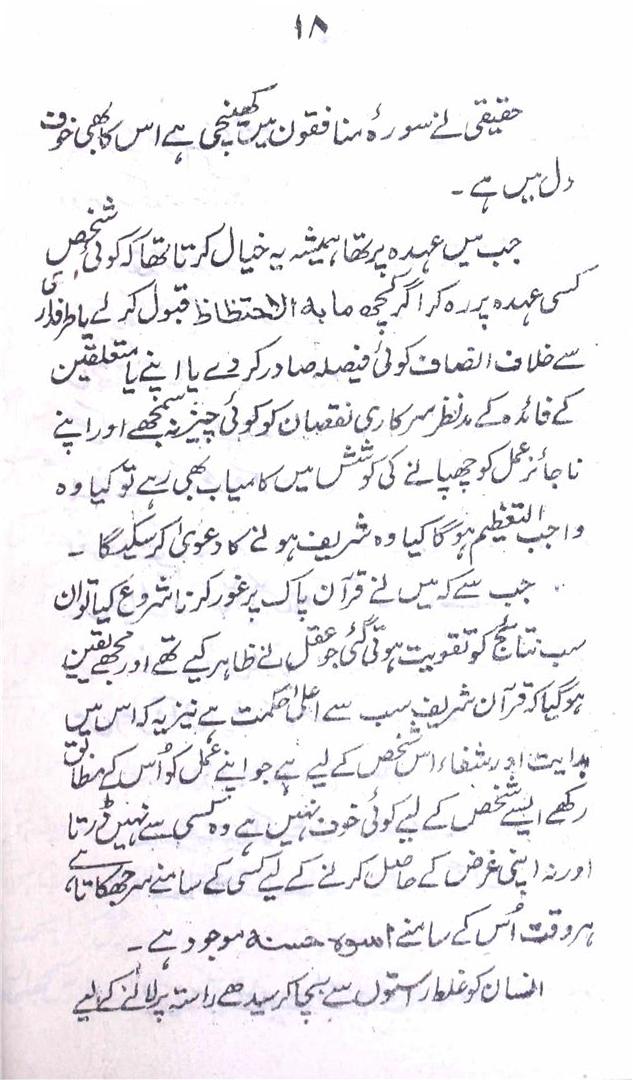 ۱۸
حقیقی نے سورۂ منافقون میں کھینچی ہے اس کا بھی خوف
دل میں ہے ۔
جب میں عہدہ پر تھا ہمیشہ یہ خیال کرتا تھا کہ کوئی شخص
کسی عہدہ پر رہ کر اگر کچھ مابہ الاحتظاظ قبول کرلے یا طرفداری
سے خلاف انصاف کوئی فیصلہ صادر کردے یا اپنے یا متعلقین
کے فائدہ کے مدنظر سرکاری نقصان کو کوئی چیز نہ سمجھے اور اپنے
ناجائز عمل کو چھپانے کی کوشش میں کامیاب بھی رہے تو کیا وہ
واجب التعظیم ہوگا کیا وہ شریف ہونے کا دعویٰ کرسکیگا ۔
جب سے کہ میں نے قرآن پاک پر غور کرنا شروع کیا تو ان
سب نتائج کو تقویت ہوتی گئی جو عقل نے ظاہر کیے تھے اور مجھے یقین
ہوگیا کہ قرآن شریف سب سے اعلیٰ حکمت ہے نیز یہ کہ اس میں
ہدایت اور شفاء اس شخص کے لیے ہے جو اپنے عمل کو اُس کے مطابق
رکھے ایسے شخص کے لیے کوئی خوف نہیں ہے وہ کسی سے نہیں ڈرتا
اور نہ اپنی غرض کے حاصل کرنے کے لیے کسی کے سامنے سر جھکاتا ہے
ہر وقت اُس کے سامنے اسوہ حسنہ موجود ہے ۔
انسان کو غلط راستوں سے بچا کر سیدھے راستہ پر لانے کے لیے